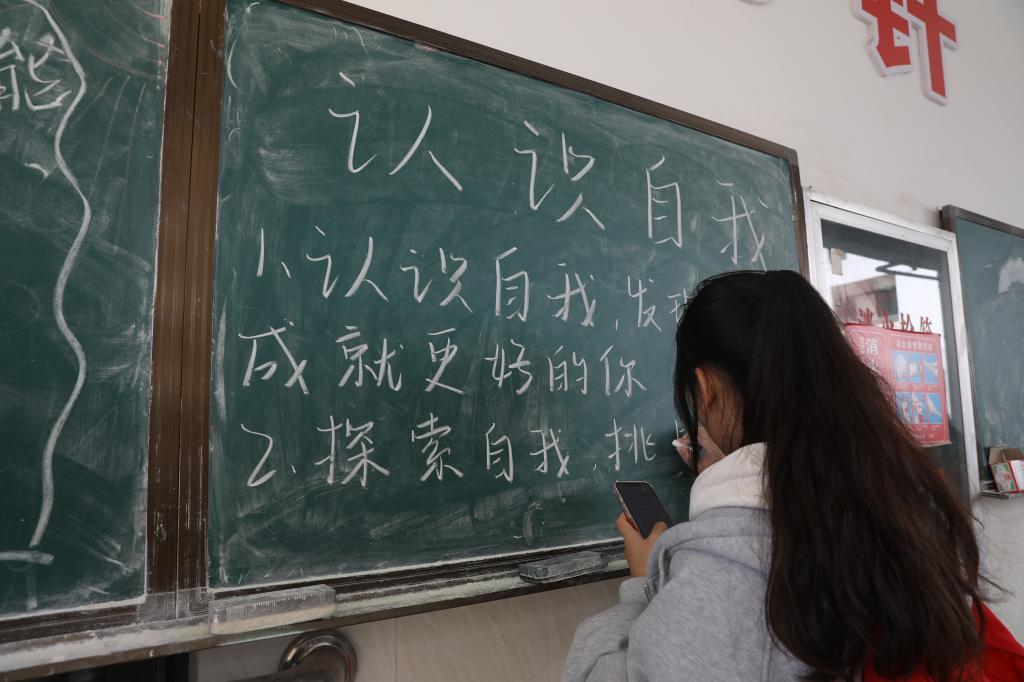 能
认识自我
1、认识自我,发
成就更好的你
2.探索自我,挑
消